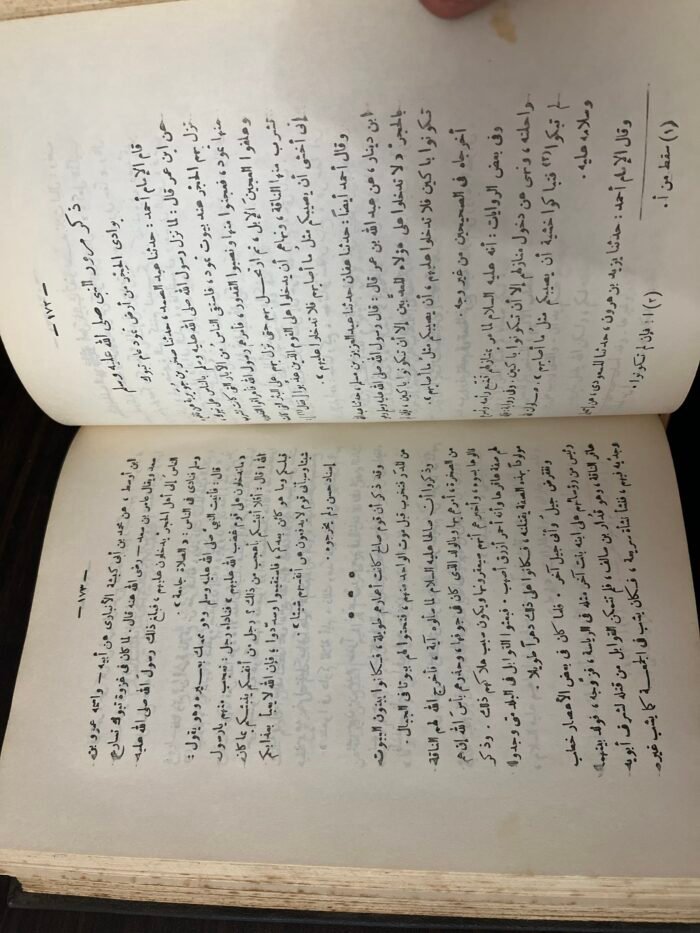 — ١٧٢ —
ذكر مرور النبي صلى الله عليه وسلم
بوادى الحجر من أرض ثمود عام تبوك
قال الإمام أحمد : حدثنا عبد الصمد ، حدثنا صخر بن جويرية عن نافع
عن ابن عمر قال : لما نزل رسول الله صلى الله عليه وسلم بالناس على تبوك
نزل بهم الحجر عند بيوت ثمود ، فاستقى الناس من الآبار التى كانت تشرب
منها ثمود ، فعجنوا منها ونصبوا القدور ، فأمرهم رسول الله فأهراقوا القدور
وعلفوا العجين الإبل ، ثم ارتحل بهم حتى نزل بهم على البئر التى كانت
تشرب منها الناقة ، ونهاهم أن يدخلوا على القوم الذين عذبوا
إنى أخشى أن يصيبكم مثل ما أصابهم فلا تدخلوا عليهم » .
وقال أحمد أيضاً : حدثنا عفان حدثنا عبد العزيز بن مسلم ، حدثنا عبد الله
ابن دينار ، عن عبد الله بن عمر قال : قال رسول الله صلى الله عليه وسلم وهو
بالحجر « لا تدخلوا على هؤلاء المعذبين إلا أن تكونوا باكين ، فإن لم
تكونوا باكين فلا تدخلوا عليهم ، أن يصيبكم مثل ما أصابهم » .
أخرجاه فى الصحيحين من غير وجه .
وفى بعض الروايات : أنه عليه السلام لما مر بمنازلهم قنع رأسه وأسرع
راحلته ، ونهى عن دخول منازلهم إلا أن تكونوا باكين . وفى رواية : « فإن
لم تبكوا (٢) فتباكوا خشية أن يصيبكم مثل ما أصابهم » ، صلوات الله
وسلامه عليه .
وقال الإمام أحمد : حدثنا يزيد بن هرون ، حدثنا المسعودى ، عن إسماعيل
(١) سقط من أ . (٢) ا : فإن لم تكونوا .
— ١٧٣ —
ابن أوسط ، عن محمد بن أبى كبشة الأنبارى عن أبيه — واسمه عمرو بن
سعد ويقال عامر بن سعد — رضى الله عنه قال . لما كان فى غزوة تبوك تسارع
الناس إلى أهل الحجر يدخلون عليهم ، فبلغ ذلك رسول الله صلى الله عليه
وسلم فنادى فى الناس : « الصلاة جامعة » .
قال : فأتيت النبى صلى الله عليه وسلم وهو ممسك بعيره وهو يقول :
« ما تدخلون على قوم غضب الله عليهم » فناداه رجل : نعجب منهم يا رسول
الله ! قال : أفلا أنبئكم بأعجب من ذلك ؟ رجل من أنفسكم ينبئكم بما كان
قبلكم وما هو كائن بعدكم ، فاستقيموا وسددوا ؛ فإن الله لا يعبأ بعذابكم
شيئا وسيأتى قوم لا يدفعون عن أنفسهم شيئا » .
إسناد حسن ولم يخرجوه .
• • •
وقد ذكر أن قوم صالح كانت أعمارهم طويلة ، فكانوا يبنون البيوت
من المدر فتخرب قبل موت الواحد منهم ، فنحتوا لهم بيوتا فى الجبال .
وذكروا أن صالحا عليه السلام لما سألوه آية ، فأخرج الله لهم الناقة
من الصخرة ، أمرهم بها وبالولد الذى كان فى جوفها ، وحذرهم بأس الله إن هم
نالوها بسوء ، وأخبرهم أنهم سيعقرونها ويكون سبب هلاكهم ذلك . وذكر
لهم صفة عاقرها وأنه أحمر أزرق أصهب . فبعثوا القوابل فى البلد متى وجدوا
مولودا بهذه الصفة يقتلنه ، فكانوا على ذلك دهرا طويلا .
وانقرض جيل وأتى جيل آخر . فلما كان فى بعض الأعصار خطب
رئيس من رؤسائهم على ابنه بنت آخر مثله فى الرياسة ، فزوجه ، فولد بينهما
عاقر الناقة ، وهو قدار بن سالف ، فلم تتمكن القوابل من قتله لشرف أبويه
وجديه فيهم ، فنشأ نشأة سريعة ، فكان يشب فى الجمعة كما يشب غيره